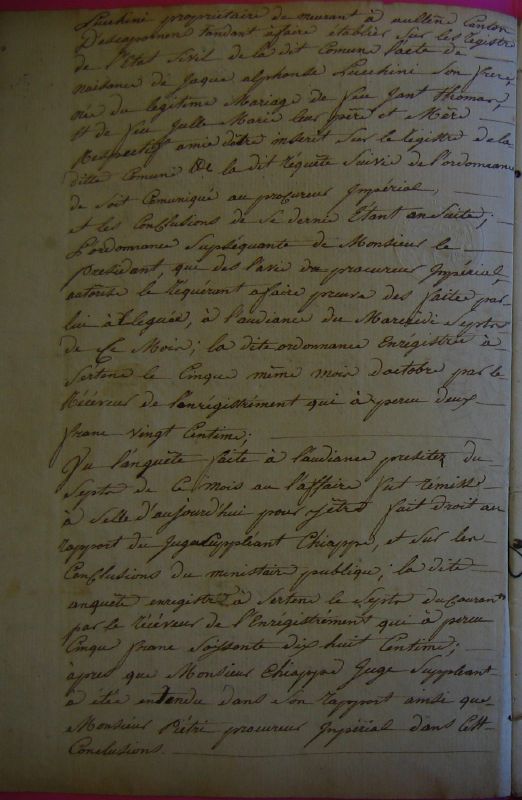 Lucchini propriétaire demeurant à aullène Canton
Descopamene tandant afaire établir sur les Registre
de l'Etat Sivil de la dit Comune l'acte de
naisance de Jaque alphonse Lucchini son frere
née du légitime Mariage de feu Jant thomas,
et de feu Julle Marie leur père et Mère
Respectifs amie dêtre inserit Sur le registre de la
ditte Comune la dit requête Suivie de l'ordonnance
de Soit Comuniqué au procureur Impérial,
et les Conclusions de Se dernie Etant ansuite;
L'ordonnance Supsequante de Monsieur le
Presidant, que des l'avi du procureur Impérial,
autorise le Requérant afaire preuve des faits par
lui àlleguée, à l'audiance du Marcredi Septs
de Ce Mois; la dite ordonnance Enregistrée à
Sertene le Cinque même mois d'octobre par le
Réceveur de l'enrégistrément qui à perçu deux
franc Vingt Centime;
Vu l'anquête faite à l'audiance presitez du
Septs de Ce mois au l'affaire fut remise
à Selle d'aujourd'hui pour yêtre fait droit au
rapport du Juge Suppléant Chiappe, et Sur les
Conclusions du ministair publique; la dite
anquête enregistré à Sertene le Septs du Courant
par le Réceveur de l'Enregistrément qui à perçu
Cinqu franc Soissente dix huit Centime;
àpres que Monsieur Chiappe Juge Suppléant
à étée entendu dans Son rapport ainsi que
Monsieur Piétri procureur Impérial dans Cett
Conclusions.